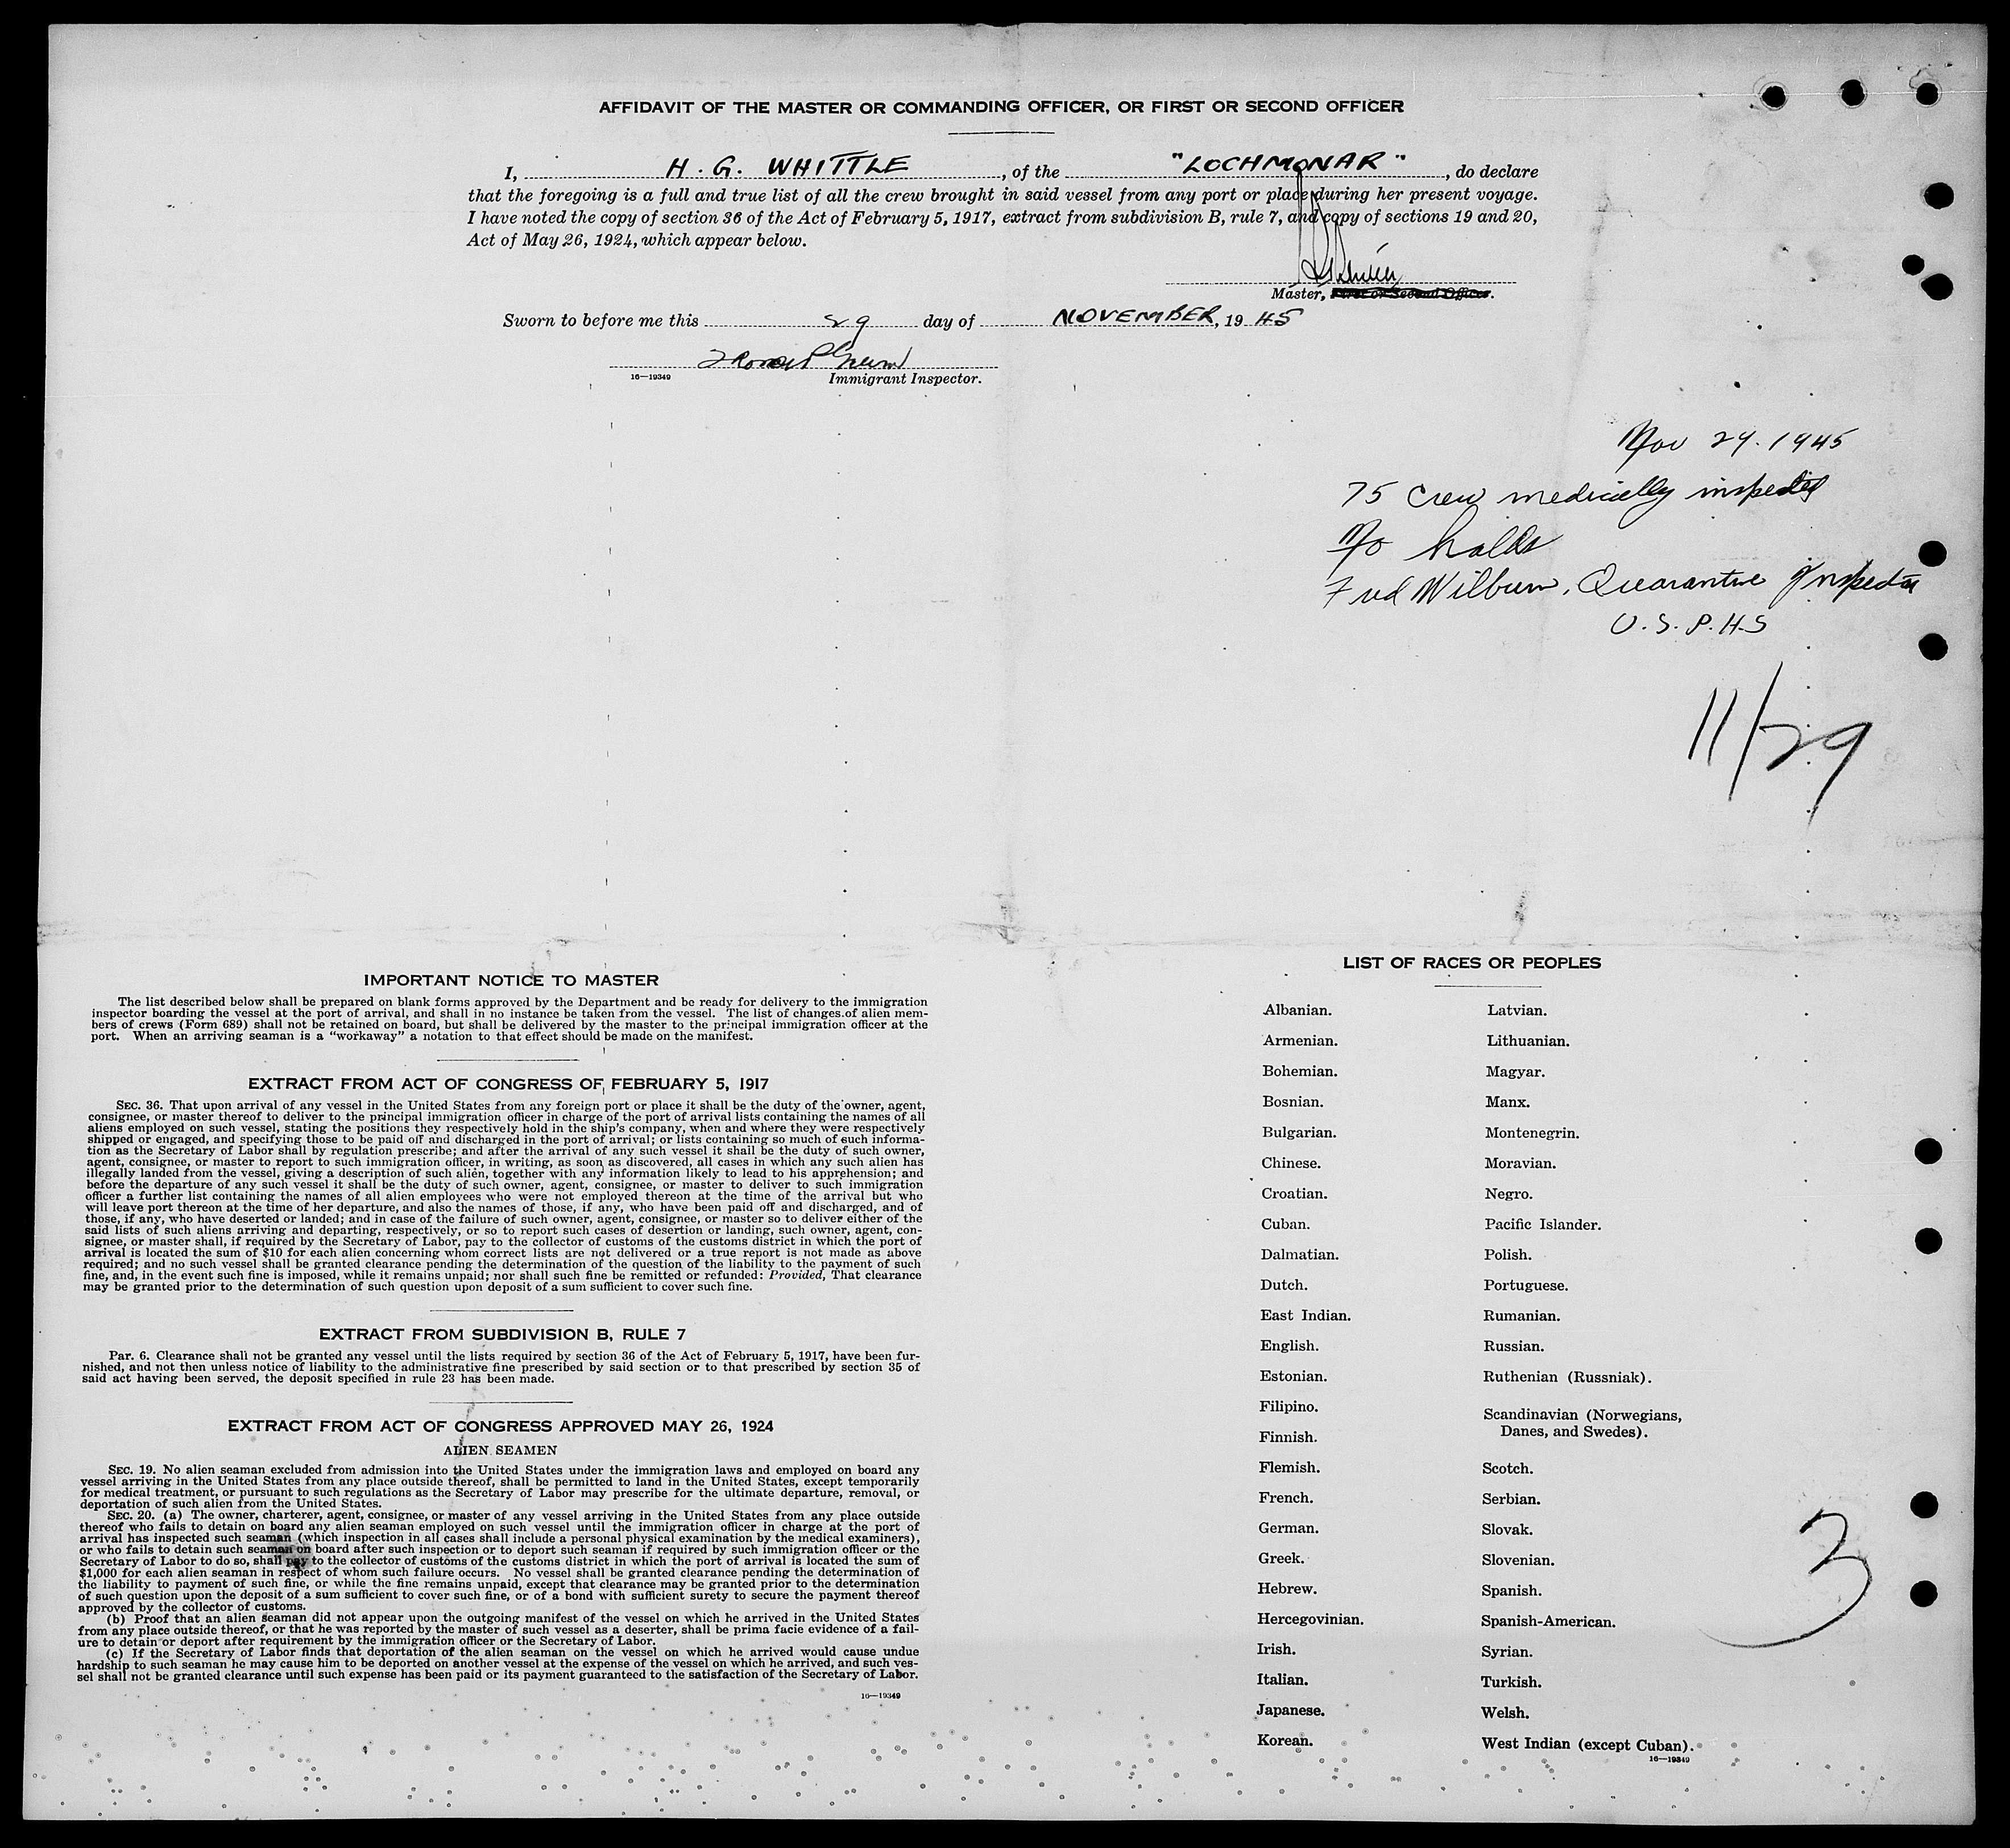 AFFIDAVIT OF THE MASTER OR COMMANDING OFFICER, OR FIRST OR SECOND OFFICER
I, H. G. WHITTLE, of the "LOCHMONAR", do declare
that the foregoing is a full and true list of all the crew brought in said vessel from any port or place during her present voyage.
I have noted the copy of section 36 of the Act of February 5, 1917, extract from subdivision B, rule 7, and copy of sections 19 and 20,
Act of May 26, 1924, which appear below.
Master, First or Second Officer.
Sworn to before me this 29 day of NOVEMBER, 19 45
16—19349 Immigrant Inspector.
Nov 29. 1945
75 Crew medically inspected
No holds
Fred Wilburn, Quarantine Inspector
U.S.P.H.S
11/29
IMPORTANT NOTICE TO MASTER
The list described below shall be prepared on blank forms approved by the Department and be ready for delivery to the immigration
inspector boarding the vessel at the port of arrival, and shall in no instance be taken from the vessel. The list of changes of alien mem-
bers of crews (Form 689) shall not be retained on board, but shall be delivered by the master to the principal immigration officer at the
port. When an arriving seaman is a "workaway" a notation to that effect should be made on the manifest.
EXTRACT FROM ACT OF CONGRESS OF FEBRUARY 5, 1917
SEC. 36. That upon arrival of any vessel in the United States from any foreign port or place it shall be the duty of the owner, agent,
consignee, or master thereof to deliver to the principal immigration officer in charge of the port of arrival lists containing the names of all
aliens employed on such vessel, stating the positions they respectively hold in the ship's company, when and where they were respectively
shipped or engaged, and specifying those to be paid off and discharged in the port of arrival; or lists containing so much of such informa-
tion as the Secretary of Labor shall by regulation prescribe; and after the arrival of any such vessel it shall be the duty of such owner,
agent, consignee, or master to report to such immigration officer, in writing, as soon as discovered, all cases in which any such alien has
illegally landed from the vessel, giving a description of such alien, together with any information likely to lead to his apprehension; and
before the departure of any such vessel it shall be the duty of such owner, agent, consignee, or master to deliver to such immigration
officer a further list containing the names of all alien employees who were not employed thereon at the time of the arrival but who
will leave port thereon at the time of her departure, and also the names of those, if any, who have been paid off and discharged, and of
those, if any, who have deserted or landed; and in case of the failure of such owner, agent, consignee, or master so to deliver either of the
said lists of such aliens arriving and departing, respectively, or so to report such cases of desertion or landing, such owner, agent, con-
signee, or master shall, if required by the Secretary of Labor, pay to the collector of customs of the customs district in which the port of
arrival is located the sum of $10 for each alien concerning whom correct lists are not delivered or a true report is not made as above
required; and no such vessel shall be granted clearance pending the determination of the question of the liability to the payment of such
fine, and, in the event such fine is imposed, while it remains unpaid; nor shall such fine be remitted or refunded: Provided, That clearance
may be granted prior to the determination of such question upon deposit of a sum sufficient to cover such fine.
EXTRACT FROM SUBDIVISION B, RULE 7
Par. 6. Clearance shall not be granted any vessel until the lists required by section 36 of the Act of February 5, 1917, have been fur-
nished, and not then unless notice of liability to the administrative fine prescribed by said section or to that prescribed by section 35 of
said act having been served, the deposit specified in rule 23 has been made.
EXTRACT FROM ACT OF CONGRESS APPROVED MAY 26, 1924
ALIEN SEAMEN
SEC. 19. No alien seaman excluded from admission into the United States under the immigration laws and employed on board any
vessel arriving in the United States from any place outside thereof, shall be permitted to land in the United States, except temporarily
for medical treatment, or pursuant to such regulations as the Secretary of Labor may prescribe for the ultimate departure, removal, or
deportation of such alien from the United States.
SEC. 20. (a) The owner, charterer, agent, consignee, or master of any vessel arriving in the United States from any place outside
thereof who fails to detain on board any alien seaman employed on such vessel until the immigration officer in charge at the port of
arrival has inspected such seaman (which inspection in all cases shall include a personal physical examination by the medical examiners),
or who fails to detain such seaman on board after such inspection or to deport such seaman if required by such immigration officer or the
Secretary of Labor to do so, shall pay to the collector of customs of the customs district in which the port of arrival is located the sum of
$1,000 for each alien seaman in respect of whom such failure occurs. No vessel shall be granted clearance pending the determination of
the liability to payment of such fine, or while the fine remains unpaid, except that clearance may be granted prior to the determination
of such question upon the deposit of a sum sufficient to cover such fine, or of a bond with sufficient surety to secure the payment thereof
approved by the collector of customs.
(b) Proof that an alien seaman did not appear upon the outgoing manifest of the vessel on which he arrived in the United States
from any place outside thereof, or that he was reported by the master of such vessel as a deserter, shall be prima facie evidence of a fail-
ure to detain or deport after requirement by the immigration officer or the Secretary of Labor.
(c) If the Secretary of Labor finds that deportation of the alien seaman on the vessel on which he arrived would cause undue
hardship to such seaman he may cause him to be deported on another vessel at the expense of the vessel on which he arrived, and such ves-
sel shall not be granted clearance until such expense has been paid or its payment guaranteed to the satisfaction of the Secretary of Labor.
16—19349
LIST OF RACES OR PEOPLES
Albanian.
Armenian.
Bohemian.
Bosnian.
Bulgarian.
Chinese.
Croatian.
Cuban.
Dalmatian.
Dutch.
East Indian.
English.
Estonian.
Filipino.
Finnish.
Flemish.
French.
German.
Greek.
Hebrew.
Hercegovinian.
Irish.
Italian.
Japanese.
Korean.
Latvian.
Lithuanian.
Magyar.
Manx.
Montenegrin.
Moravian.
Negro.
Pacific Islander.
Polish.
Portuguese.
Rumanian.
Russian.
Ruthenian (Russniak).
Scandinavian (Norwegians,
Danes, and Swedes).
Scotch.
Serbian.
Slovak.
Slovenian.
Spanish.
Spanish-American.
Syrian.
Turkish.
Welsh.
West Indian (except Cuban).
16—19349
3